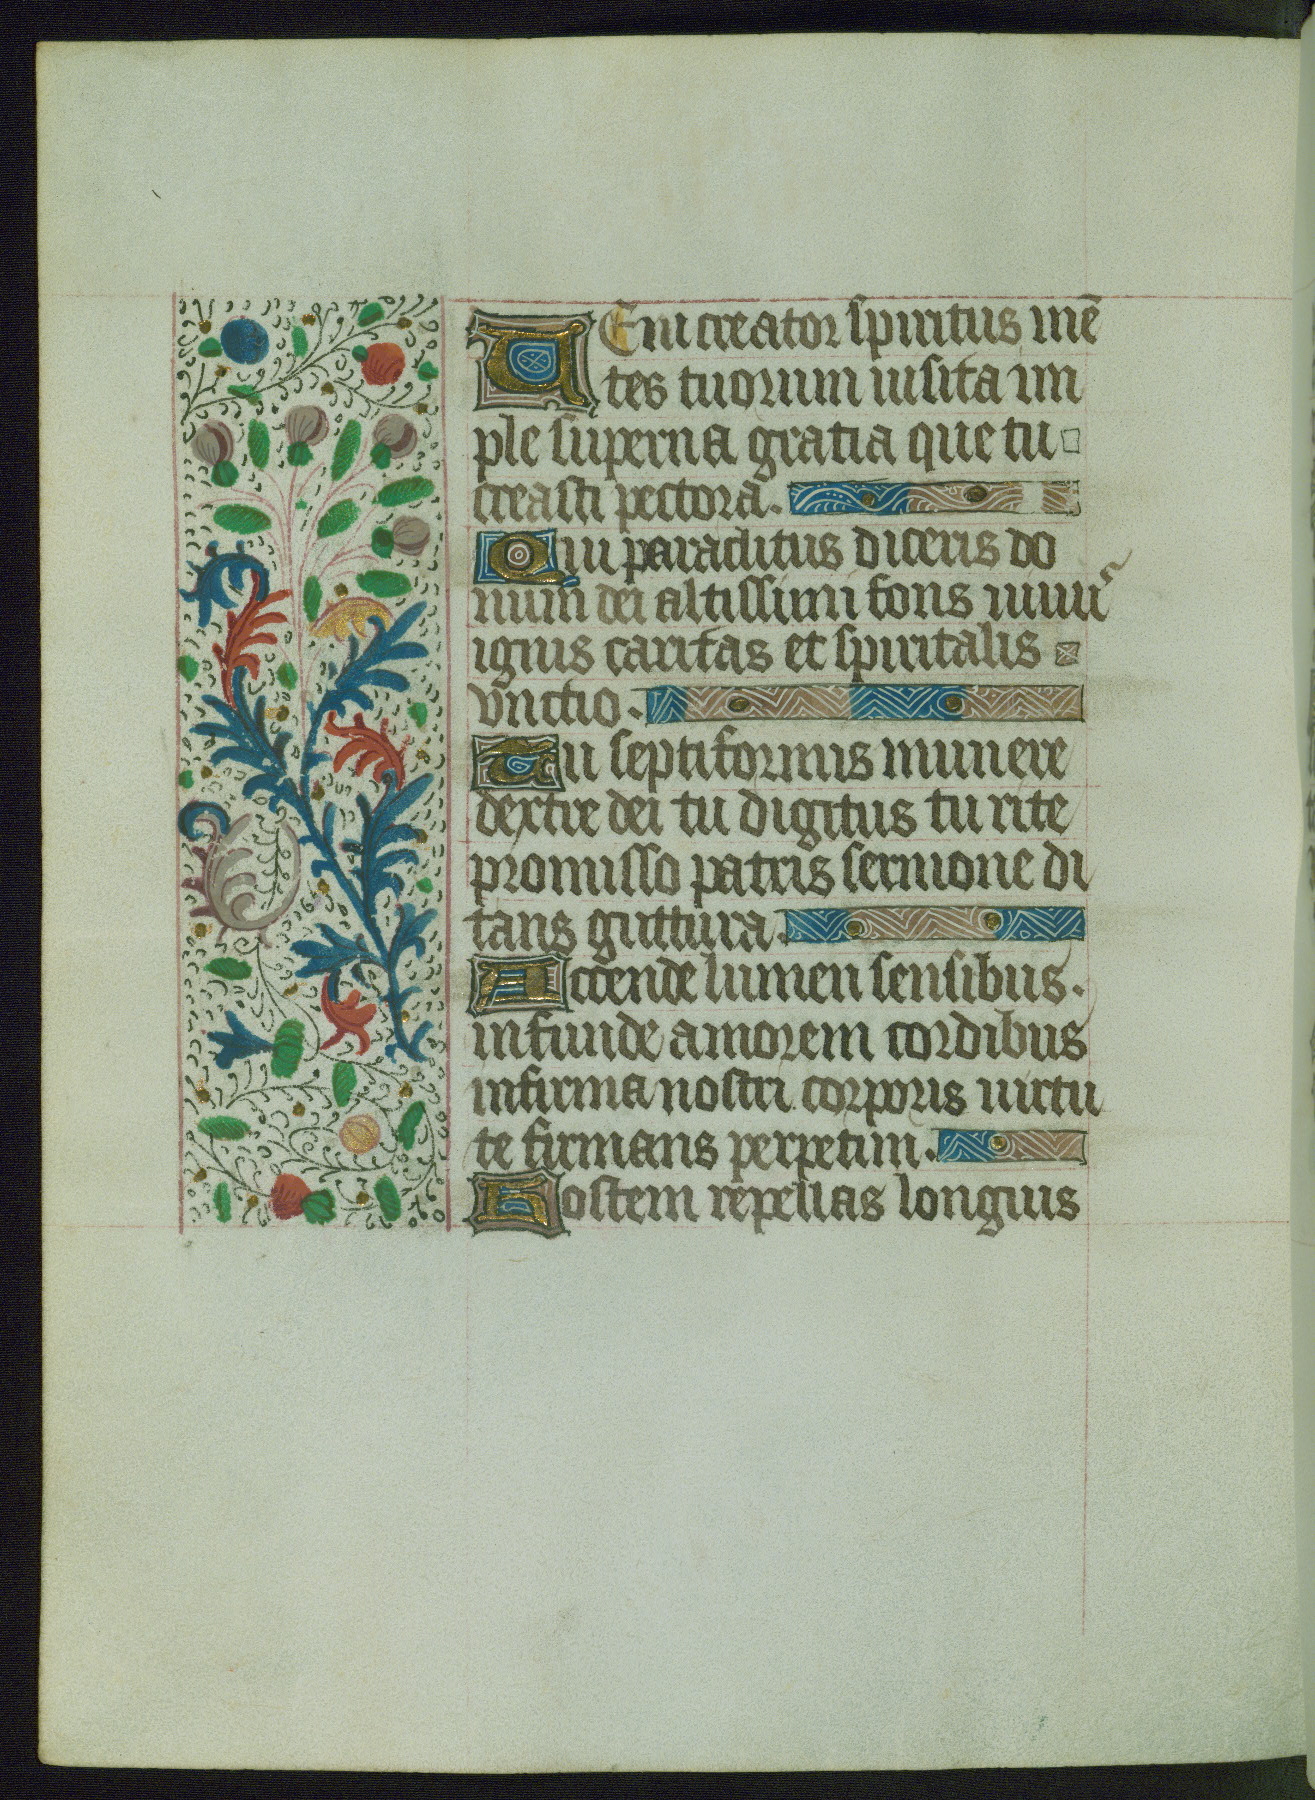 VEni creator spiritus mē
tes tuorum uisita im
ple superna gratia que tu
creasti pectora.
Qui paraclitus diceris do
num dei altissimi fons uiuus
ignis caritas et spiritalis
vnctio.
Tu septiformis munere
dextre dei tu digitus tu rite
promisso patris sermone di
tans guttura.
Accende lumen sensibus.
infunde amorem cordibus
infirma nostri corporis uirtu
te firmans perpetim.
Hostem repellas longius